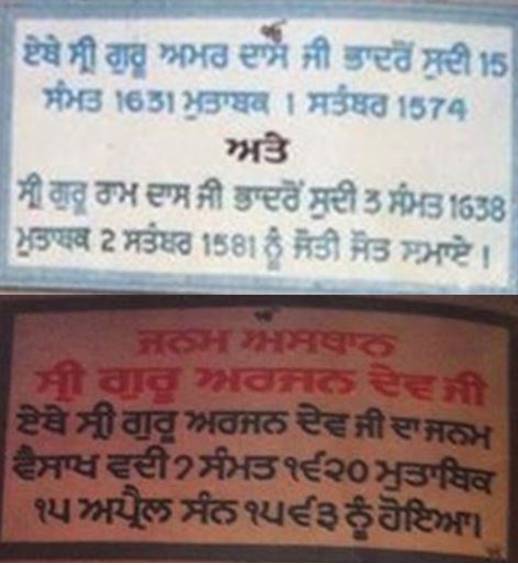 ਏਥੇ ਸ੍ਰੀ ਗੁਰੂ ਅਮਰ ਦਾਸ ਜੀ ਭਾਦਰੋਂ ਸੁਦੀ 15
ਸੰਮਤ 1631 ਮੁਤਾਬਕ 1 ਸਤੰਬਰ 1574
ਅਤੇ
ਸ੍ਰੀ ਗੁਰੂ ਰਾਮ ਦਾਸ ਜੀ ਭਾਦਰੋਂ ਸੁਦੀ 3 ਸੰਮਤ 1638
ਮੁਤਾਬਕ 2 ਸਤੰਬਰ 1581 ਨੂੰ ਜੋਤੀ ਜੋਤ ਸਮਾਏ।
ਜਨਮ ਅਸਥਾਨ
ਸ੍ਰੀ ਗੁਰੂ ਅਰਜਨ ਦੇਵ ਜੀ
ਏਥੇ ਸ੍ਰੀ ਗੁਰੂ ਅਰਜਨ ਦੇਵ ਜੀ ਦਾ ਜਨਮ
ਵੈਸਾਖ ਵਦੀ ੭ ਸੰਮਤ ੧੬੨੦ ਮੁਤਾਬਿਕ
੧੫ ਅਪ੍ਰੈਲ ਸੰਨ ੧੫੬੩ ਨੂੰ ਹੋਇਆ।